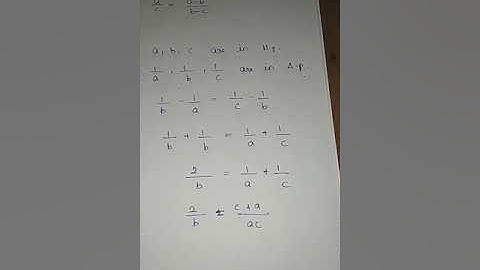 a/c = a-b/b-c
a, b, c are in H.p.
1/a, 1/b, 1/c are in A.p.
1/b - 1/a = 1/c - 1/b
1/b + 1/b = 1/a + 1/c
2/b = 1/a + 1/c
2/b = c+a/ac